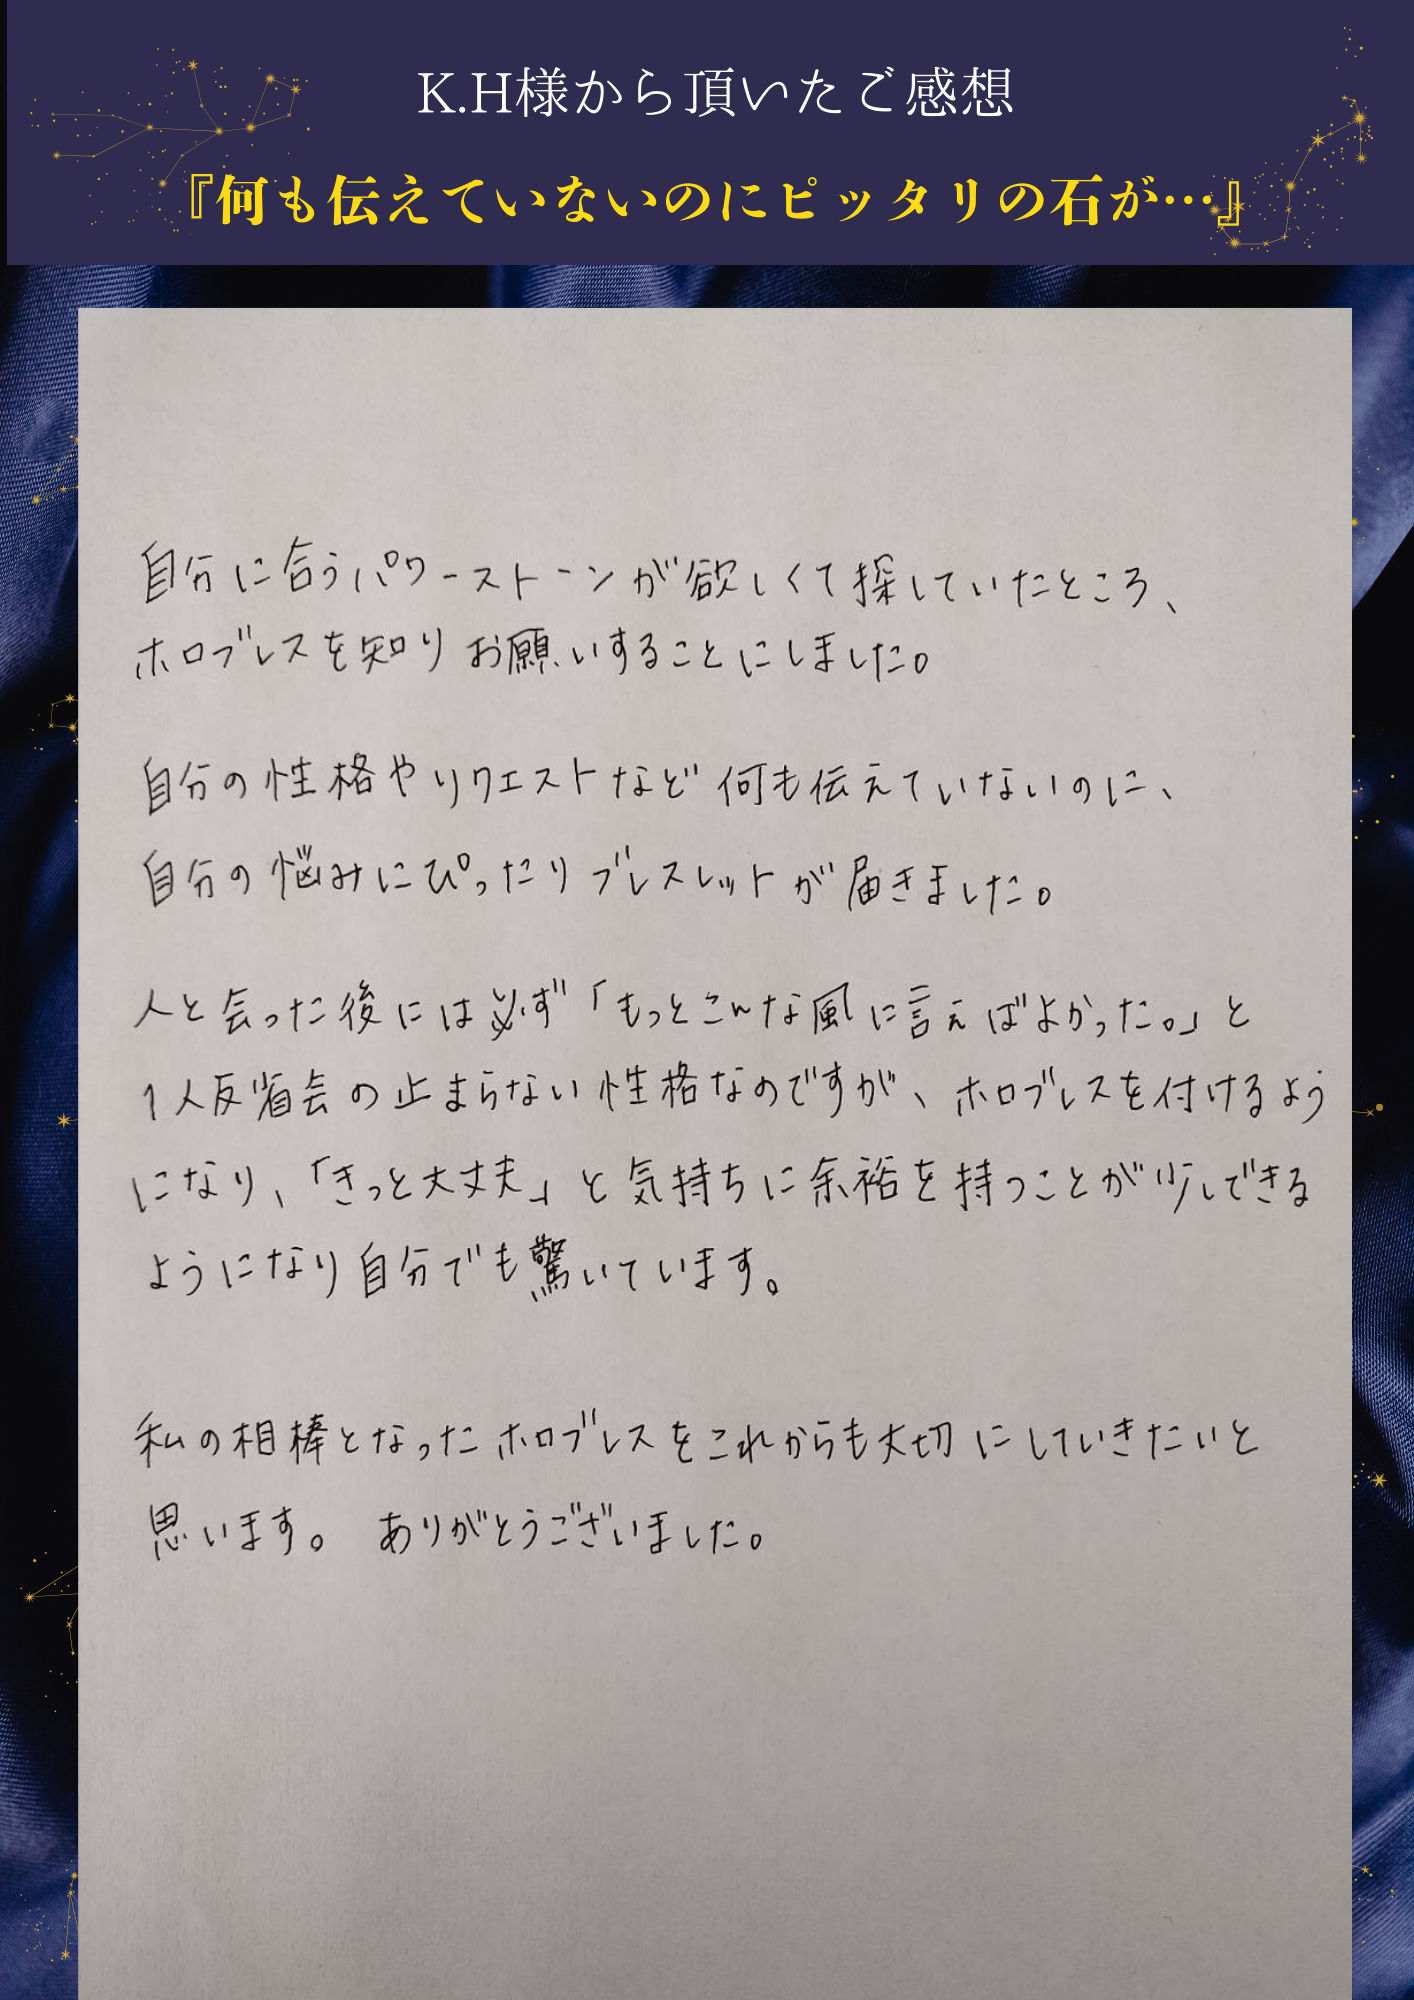 K.H様から頂いたご感想
『何も伝えていないのにピッタリの石が…』
自分に合うパワーストーンが欲しくて探していたところ、
ホロブレスを知りお願いすることにしました。
自分の性格やリクエストなど何も伝えていないのに、
自分の悩みにぴったりブレスレットが届きました。
人と会った後には必ず「もっとこんな風に言えばよかった。」と
1人反省会の止まらない性格なのですが、ホロブレスを付けるよう
になり、「きっと大丈夫」と気持ちに余裕を持つことが少しできる
ようになり自分でも驚いています。
私の相棒となったホロブレスをこれからも大切にしていきたいと
思います。 ありがとうございました。